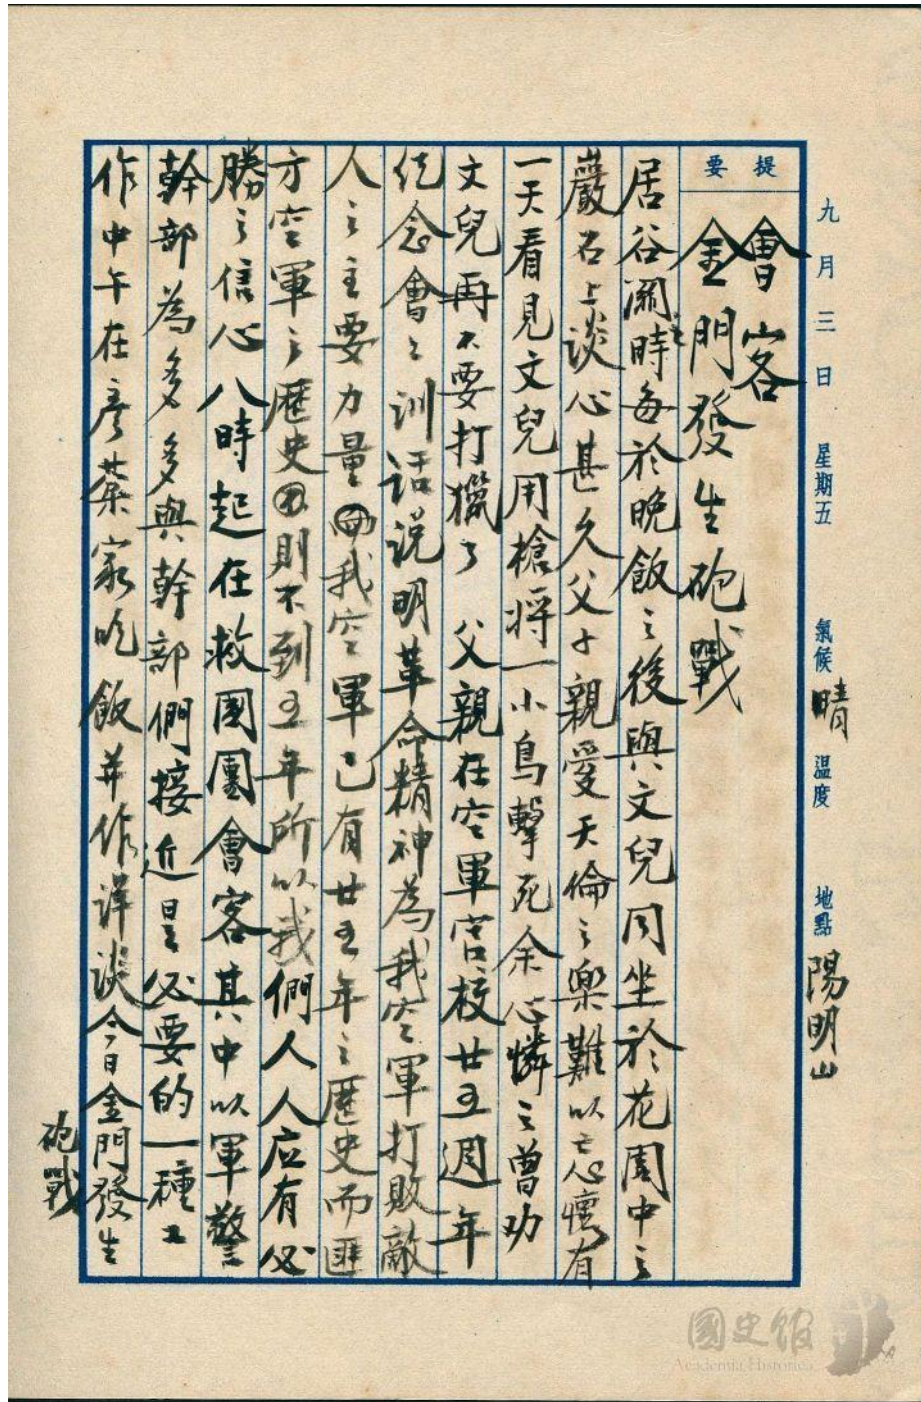 九月三日 星期五 氣候 晴 溫度 地點 陽明山
提要
會客
金門發生砲戰
居谷關時每於晚飯之後與文兒同坐於花園中之
巖石上談心甚久父子親愛天倫之樂難以忘懷有
一天看見文兒用槍將一小鳥擊死余心憐之曾劝
文兒再不要打獵了 父親在空軍官校廿五週年
紀念會之訓話說明革命精神為我空軍打敗敵
人之主要力量我空軍已有廿五年之歷史而匪
方空軍之歷史則不到五年所以我們人人应有必
勝之信心八時起在救國團會客其中以軍警
幹部為多多與幹部們接近是必要的一種工
作中午在彥棻家吃飯并作詳談今日金門發生
砲戰
國史館
Academia Historica